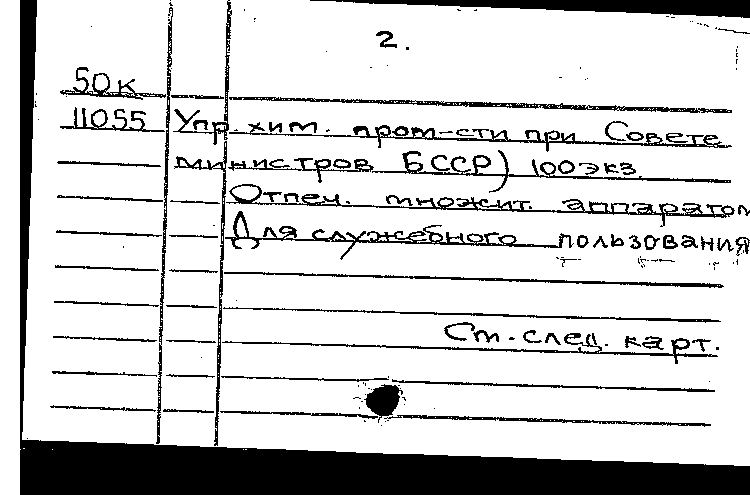 2.
50к
11055 Упр. хим. пром-сти при Совете
министров БССР) 100экз.
Отпеч. множит. аппаратом
Для служебного пользования
См. след. карт.